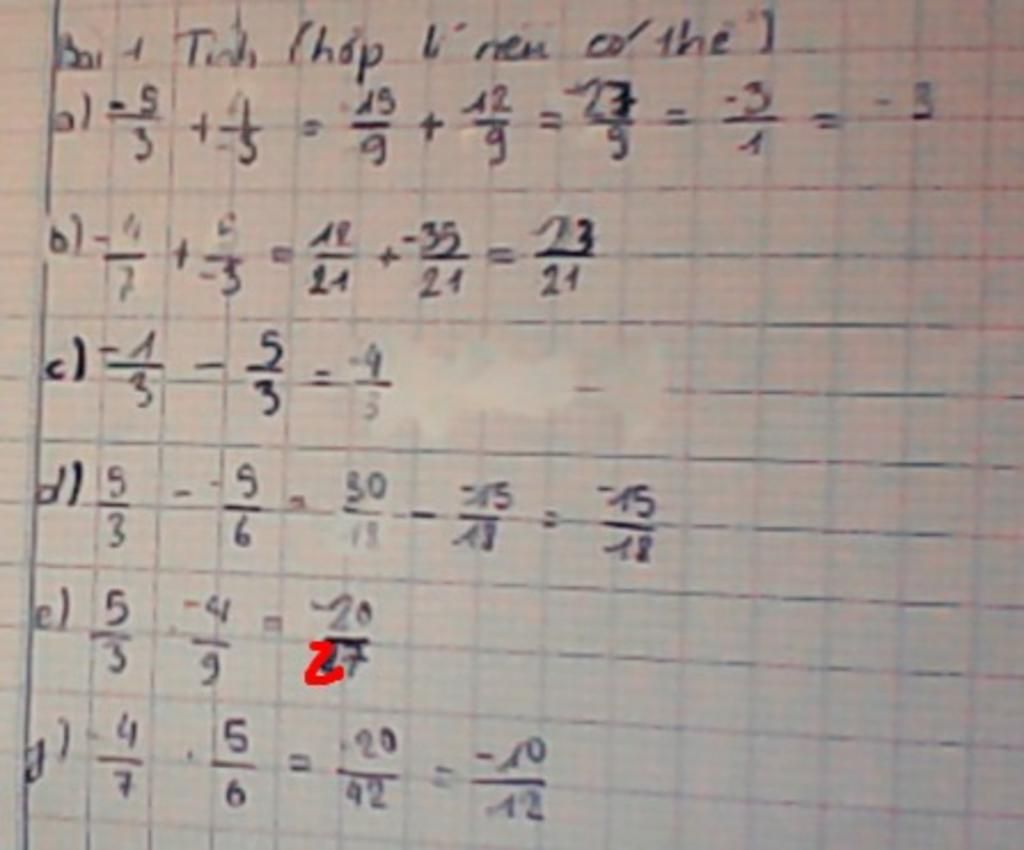 Bài 1 Tính (hợp lí nếu có thể)
a) -5/3 + 4/-3 = -15/9 + -12/9 = -27/9 = -3/1 = -3
b) -4/7 + 5/-3 = -12/21 + -35/21 = -23/21
c) -1/3 - 5/3 = -4/3
d) 5/3 - -5/6 = 30/18 - -15/18 = -15/18
e) 5/3 . -4/9 = -20/27
g) -4/7 . 5/6 = -20/42 = -10/12